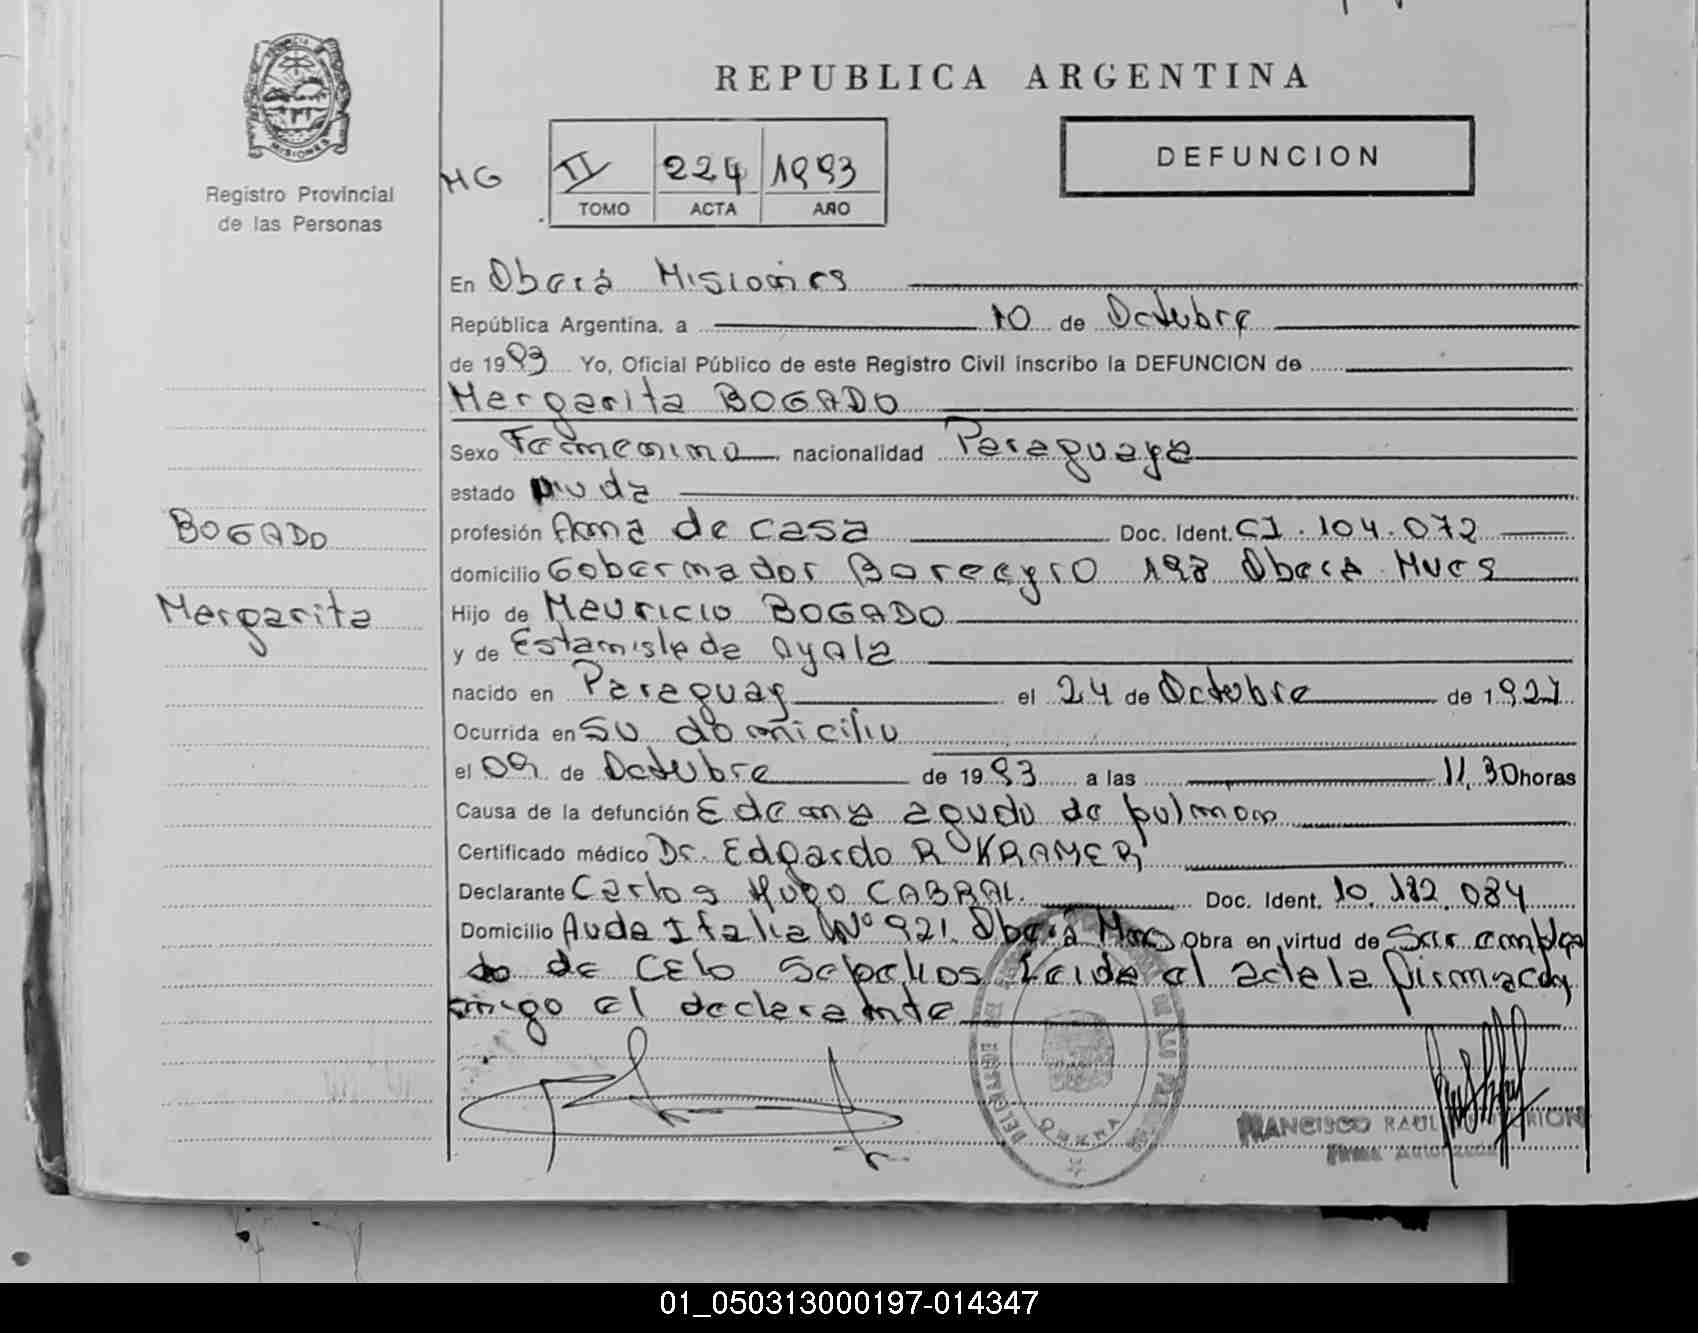 REPUBLICA ARGENTINA
PROVINCIA DE
MISIONES
Registro Provincial
de las Personas
MG
II 224 1993
TOMO ACTA AÑO
DEFUNCION
En Oberá Misiones
República Argentina, a 10 de Octubre
de 1993 Yo, Oficial Público de este Registro Civil inscribo la DEFUNCION de
Margarita BOGADO
Sexo Femenino nacionalidad Paraguaya
estado viuda
BOGADO
profesión Ama de casa Doc. Ident. CI. 104.072
domicilio Gobernador Barreyro 198 Oberá Mnes
Margarita
Hijo de Mauricio BOGADO
y de Estanislada Ayala
nacido en Paraguay el 24 de Octubre de 1927
Ocurrida en su domicilio
el 09 de Octubre de 1993 a las 11,30 horas
Causa de la defunción Edema agudo de pulmon
Certificado médico Dr. Edgardo R KRAMER
Declarante Carlos Hugo CABRAL. Doc. Ident. 10.182.084
Domicilio Avda Italia Nº 921. Oberá Mnes Obra en virtud de Ser emplea
do de CELO Sepelios Leida el acta la firma con
migo el declarante
FRANCISCO RAUL
Firma Autorizada
01_050313000197-014347